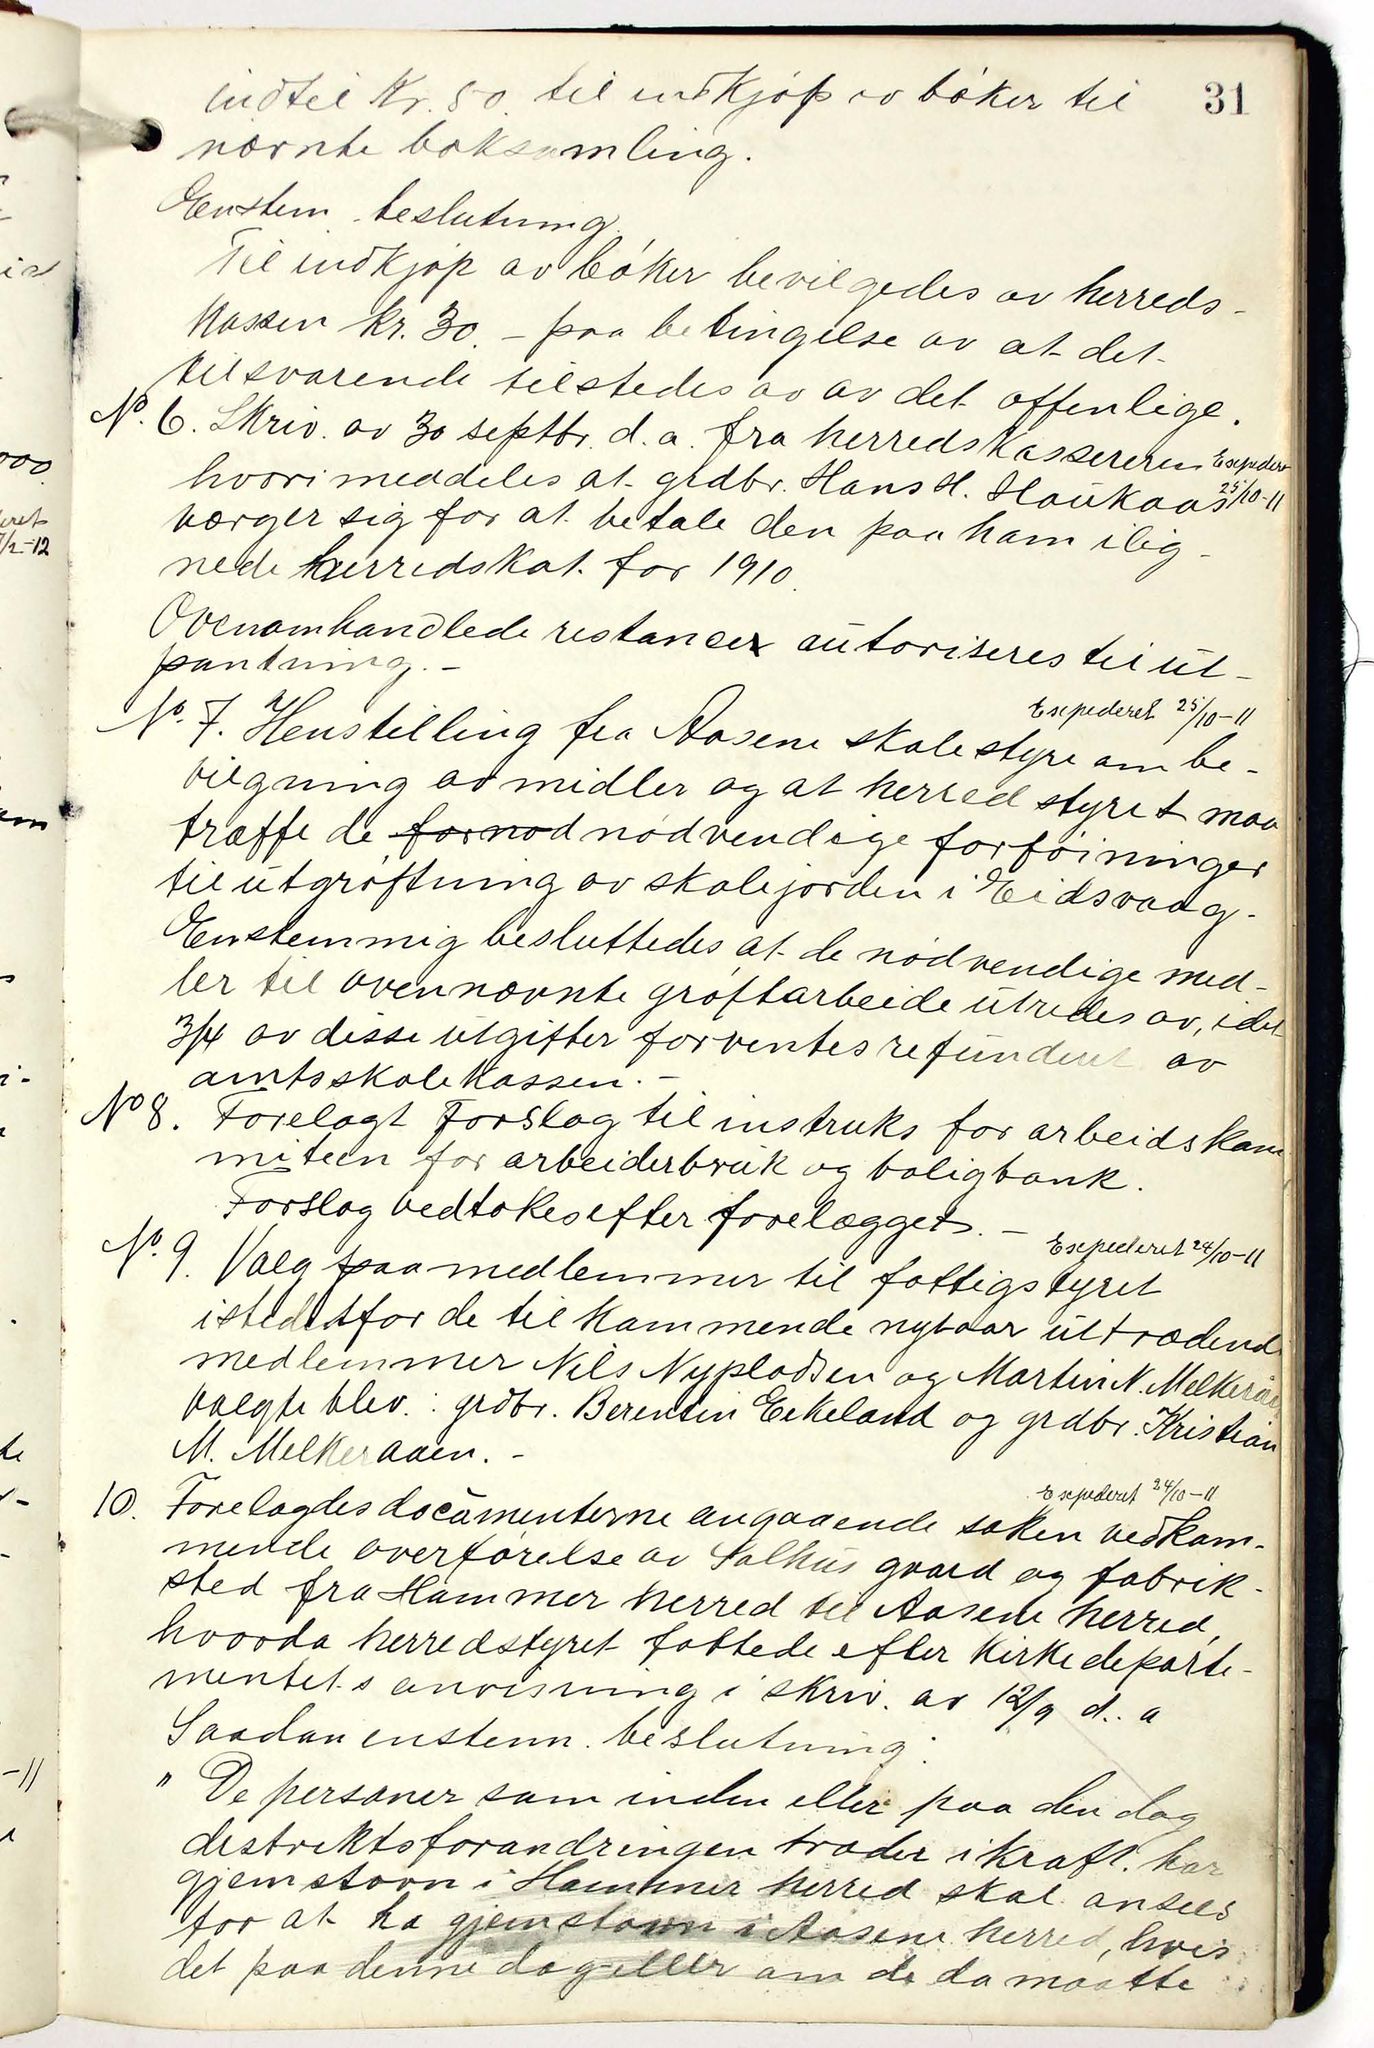 31
indtil Kr. 50. til indkjøp av bøker til
nævnte boksamling.
Enstem. beslutning.
Til indkjøp av bøker bevilgedes av herreds-
kassen kr. 30. - paa betingelse av at det
tilsvarende tilstedes av av det offenlige.
No. 6. Skriv. av 30 septbr. d. a. fra herredskassereren Expederet
hvori meddeles at grdbr. Hans H. Haukaas 25/10-11
værger sig for at betale den paa ham ilig-
nede herredskat for 1910.
Ovenomhandlede restancer autoriseres til ut-
pantning. -
Expederet 25/10-11
No. 7. Henstilling fra Aasene skolestyre om be-
vilgning av midler og at herredstyret maa
træffe de fornød nødvendige forføininger
til utgrøftning av skolejorden i Eidsvaag.
Enstemmig besluttedes at de nødvendige mid-
ler til ovennævnte grøftarbeide utredes av, idet
3/4 av disse utgifter forventes refunderet av
amtsskolekassen. -
No 8. Forelagt Forslag til instruks for arbeidskom
miteen for arbeiderbruk og boligbank.
Forslag vedtokes efter forelægget. -
Expederet 24/10-11
No. 9. Valg paa medlemmer til fattigstyret
istedetfor de til kommende nytaar uttrædende
medlemmer Nils Nypladsen og Martin N. Melkeraaen
Valgte blev: grdbr. Berentin Eikeland og grdbr. Kristian
M. Melkeraaen. -
Expederet 24/10-11
10. Forelagdes documenterne angaaende saken vedkom-
mende overførelse av Salhus gaard og fabrik-
sted fra Hammer herred til Aasene herred,
hvorda herredstyret fattede efter Kirkedeparte-
mentets anvisning i skriv. av 12/9 d. a
Saadan enstem. beslutning:
"De personer som inden eller paa den dag
distriktsforandringen træder i kraft. har
hjemstavn i Hammer herred skal ansees
for at ha hjemstavn i Aasene herred, hvis
det paa denne dag eller om de da maatte